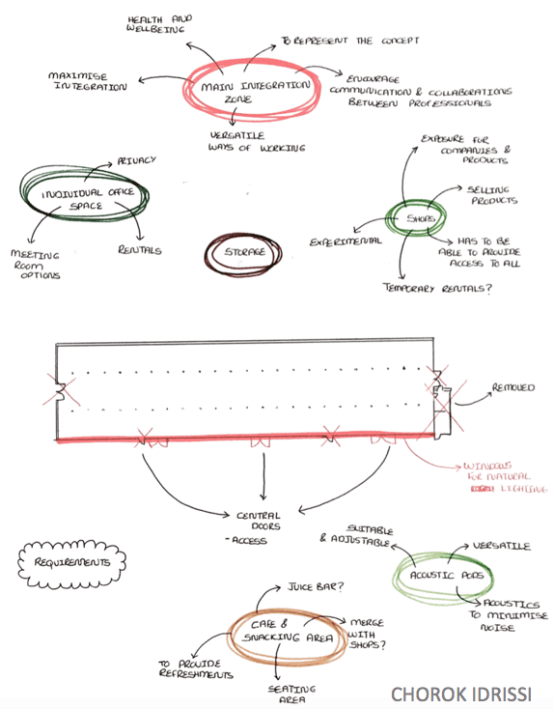 HEALTH AND
WELLBEING
TO REPRESENT THE CONCEPT
MAXIMISE
INTEGRATION
MAIN INTEGRATION
ZONE
ENCOURAGE
COMMUNICATION & COLLABORATIONS
BETWEEN PROFESSIONALS
VERSATILE
WAYS OF WORKING
PRIVACY
INDIVIDUAL OFFICE
SPACE
MEETING
ROOM
OPTIONS
RENTALS
STORAGE
EXPOSURE FOR
COMPANIES &
PRODUCTS
SELLING
PRODUCTS
SHOPS
EXPERIMENTAL
HAS TO BE
ABLE TO PROVIDE
ACCESS TO ALL
TEMPORARY RENTALS?
REMOVED
WINDOWS
FOR NATURAL
LIGHTING
CENTRAL
DOORS
- ACCESS
REQUIREMENTS
SUITABLE
& ADJUSTABLE
VERSATILE
ACOUSTIC PODS
ACOUSTICS
TO MINIMISE
NOISE
JUICE BAR?
CAFE &
SNACKING AREA
MERGE
WITH
SHOPS?
TO PROVIDE
REFRESHMENTS
SEATING
AREA
CHOROK IDRISSI